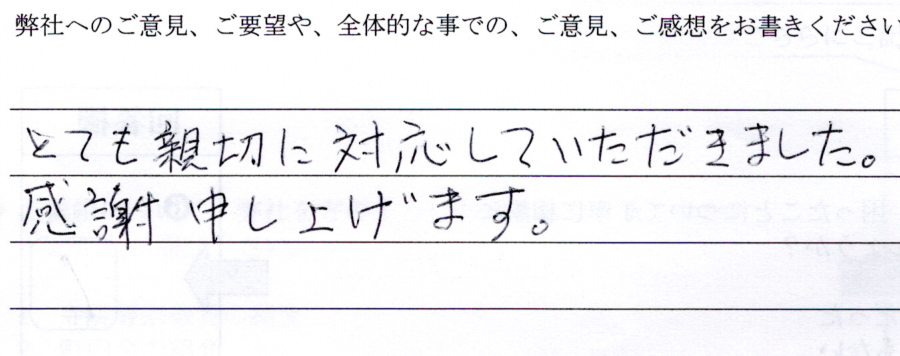 弊社へのご意見、ご要望や、全体的な事での、ご意見、ご感想をお書きください
とても親切に対応していただきました。
感謝申し上げます。